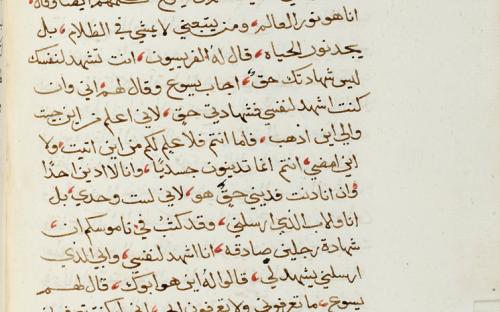 انا هو نور العالم، ومن يتبعني لا يمشي في الظلام، بل
يجد نور الحياه، قال له الفريسيون، انت تشهد لنفسك
ليس شهادتك حق، اجاب يسوع وقال لهم، اني وان
كنت اشهد لنفسي فشهادتي حق، لاني اعلم من اين جيت
والي اين اذهب، فاما انتم فلا علم لكم من اين اتيت، ولا
اين امضي، انتم انما تدينون جسديا، وانا لا ادين احدا
وان انا دنت فديني حق هو، لاني لست وحدي، بل
انا والاب الذي ارسلني، وقد كتب في ناموسكم ان
شهادة رجلين صادقه، انا اشهد لنفسي، وابي الذي
ارسلني يشهد لي، قالوا له اين هو ابوك، قال لهم
يسوع، ما تعرفوني ولا تعرفون ابي،